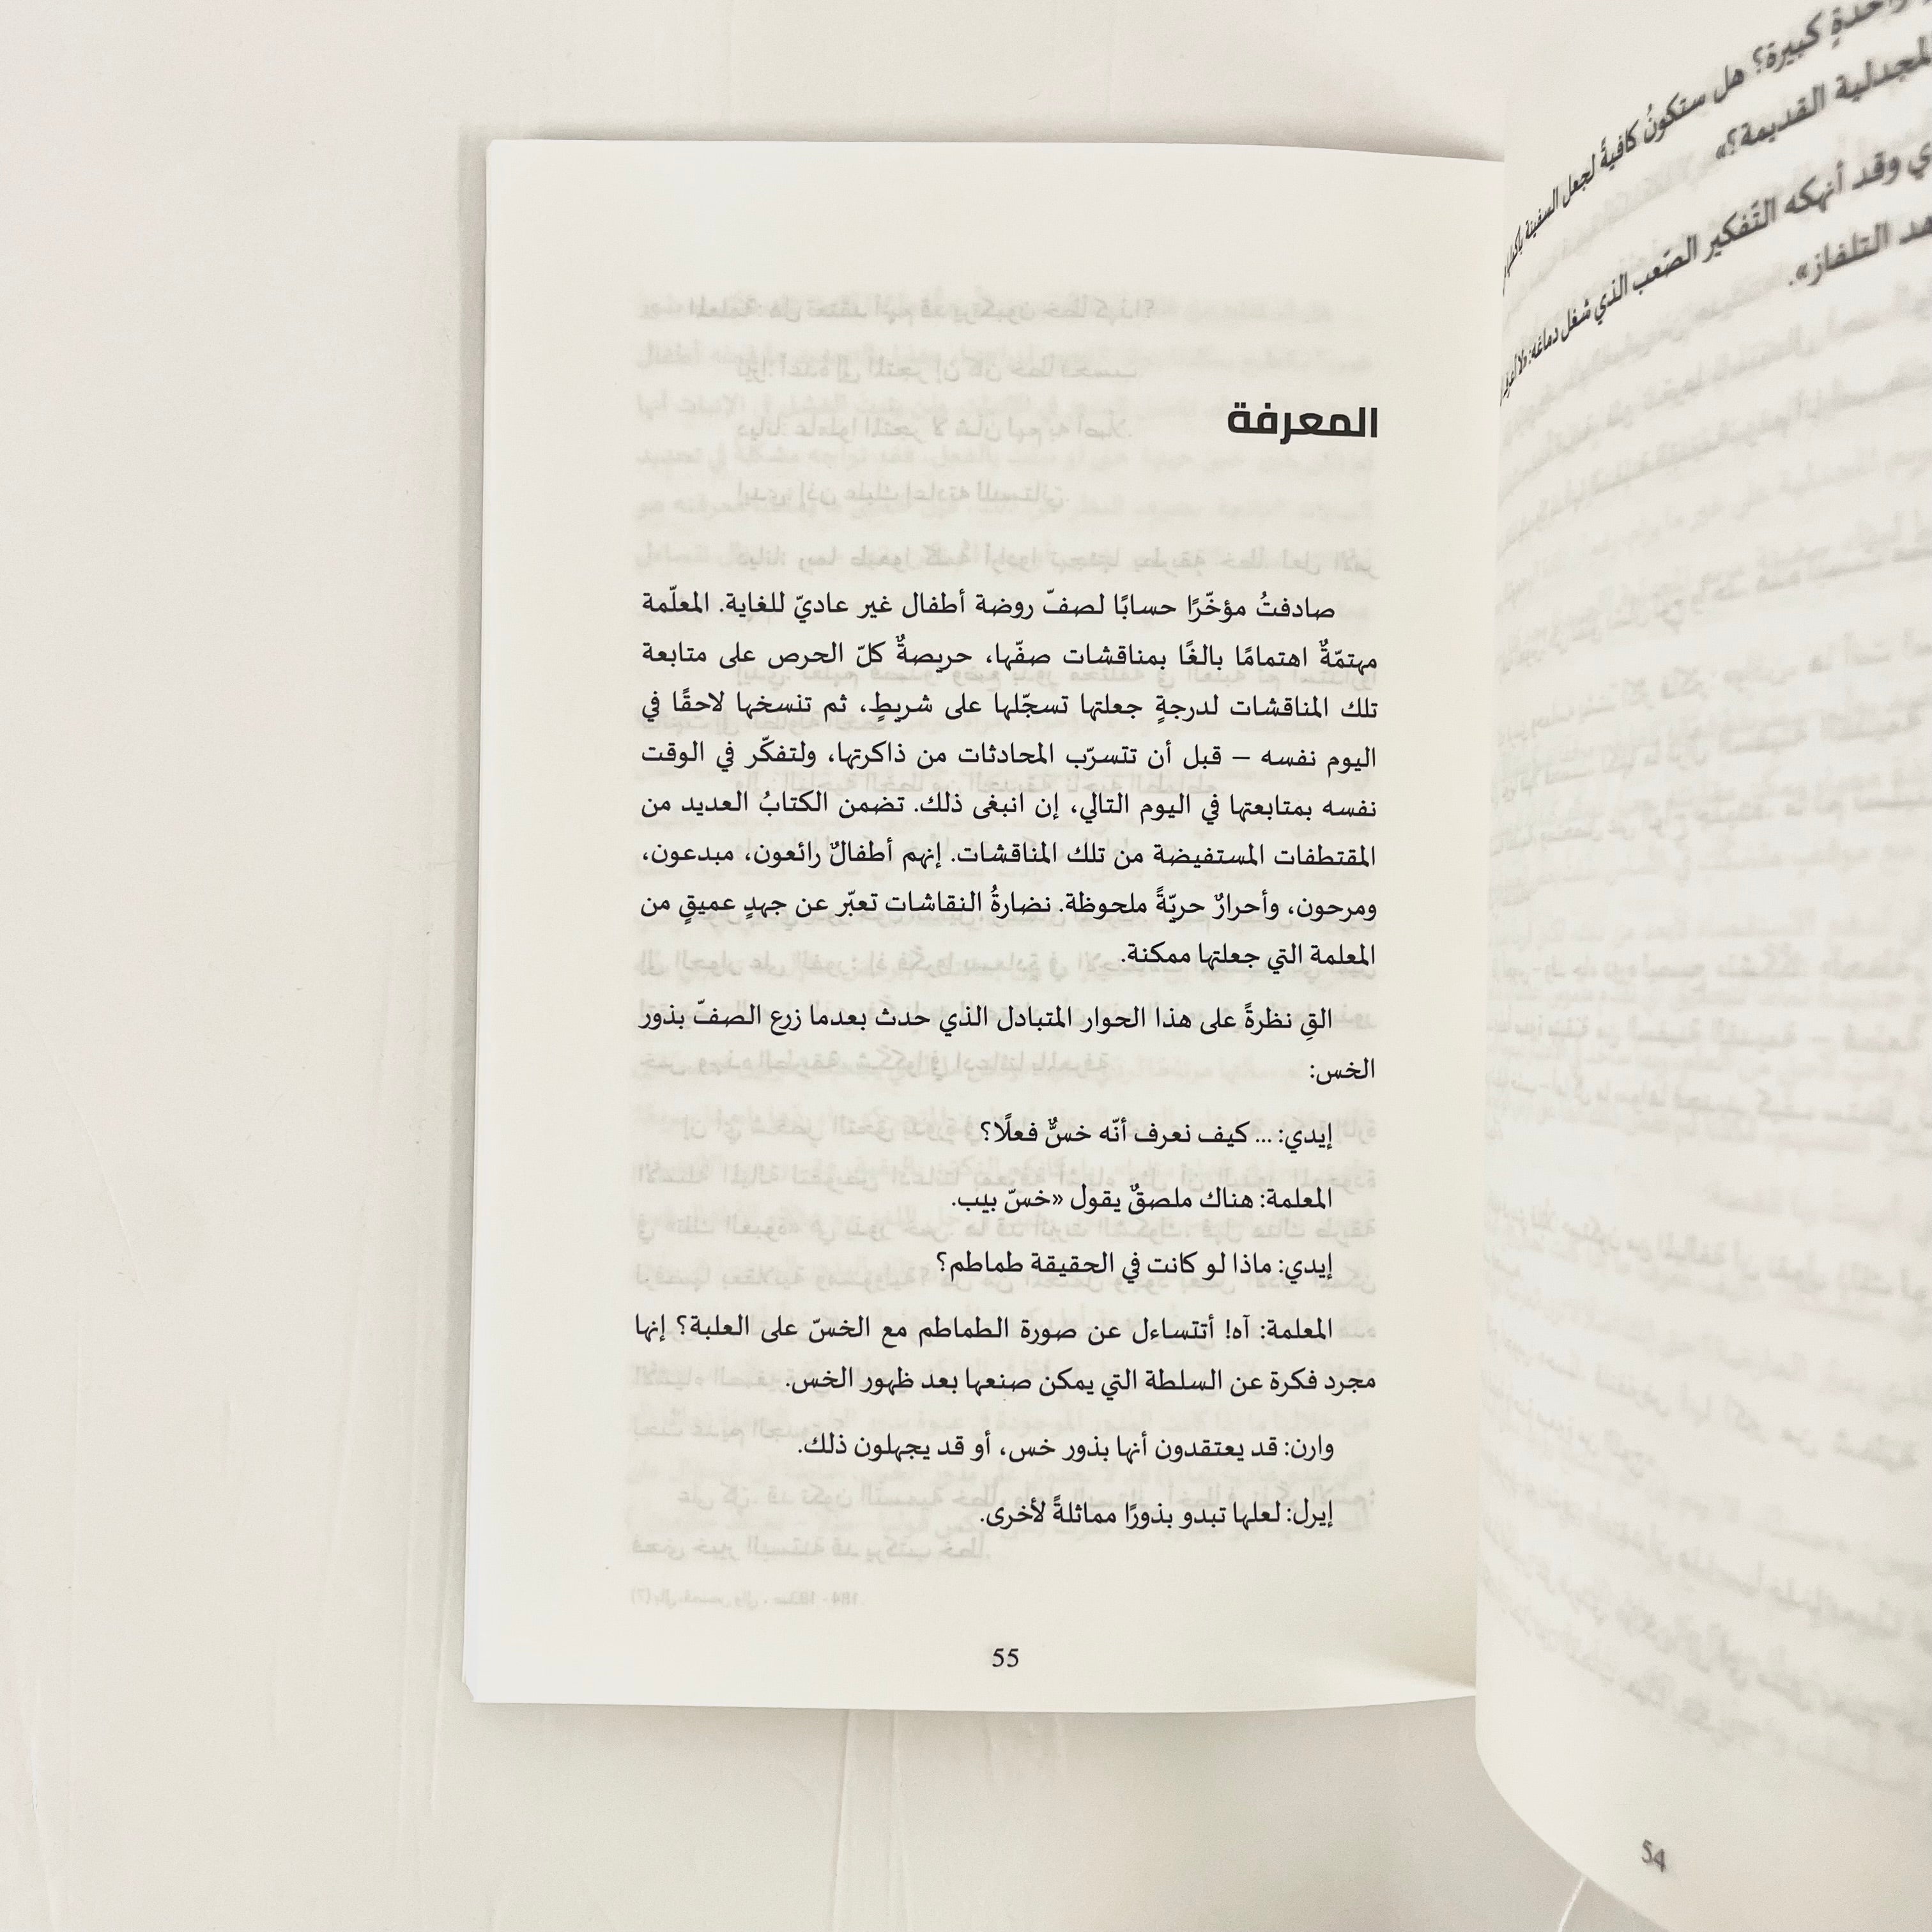 المعرفة
صادفتُ مؤخّرًا حسابًا لصفّ روضة أطفال غير عاديّ للغاية. المعلّمة
مهتمّةٌ اهتمامًا بالغًا بمناقشات صفّها، حريصةٌ كلّ الحرص على متابعة
تلك المناقشات لدرجةٍ جعلتها تسجّلها على شريطٍ، ثم تنسخها لاحقًا في
اليوم نفسه – قبل أن تتسرّب المحادثات من ذاكرتها، ولتفكّر في الوقت
نفسه بمتابعتها في اليوم التالي، إن انبغى ذلك. تضمن الكتابُ العديد من
المقتطفات المستفيضة من تلك المناقشات. إنهم أطفالٌ رائعون، مبدعون،
ومرحون، وأحرارٌ حريّةً ملحوظة. نضارةُ النقاشات تعبّر عن جهدٍ عميقٍ من
المعلمة التي جعلتها ممكنة.
القِ نظرةً على هذا الحوار المتبادل الذي حدث بعدما زرع الصفّ بذور
الخس:
إيدي: ... كيف نعرف أنّه خسٌّ فعلًا؟
المعلمة: هناك ملصقٌ يقول «خسّ بيب.
إيدي: ماذا لو كانت في الحقيقة طماطم؟
المعلمة: آه! أتتساءل عن صورة الطماطم مع الخسّ على العلبة؟ إنها
مجرد فكرة عن السلطة التي يمكن صنعها بعد ظهور الخس.
وارن: قد يعتقدون أنها بذور خس، أو قد يجهلون ذلك.
إيرل: لعلها تبدو بذورًا مماثلةً لأخرى.
55
كبيرة؟ هل ستكونُ كافيةً لجعل السفينة
المجدلية القديمة؟»
وقد أنهكه التّفكير الصّعب الذي شغل دماغه:
التلفاز».
54